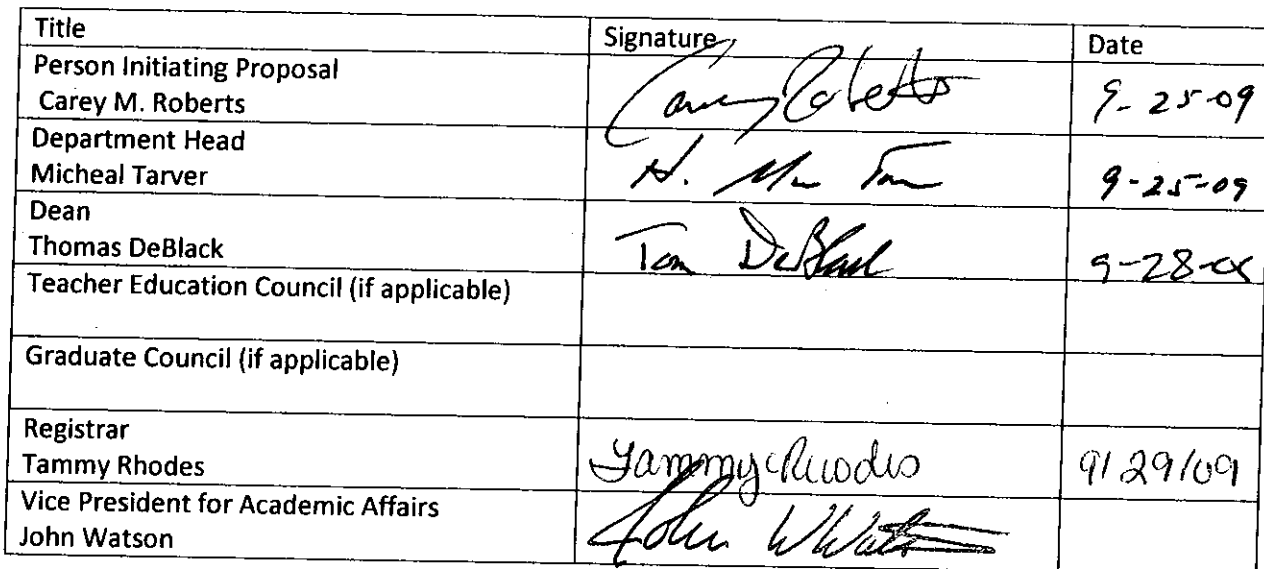 Title Signature Date
Person Initiating Proposal
Carey M. Roberts Carey Roberts 9-25-09
Department Head
Micheal Tarver H. M Tar 9-25-09
Dean
Thomas DeBlack Tom DeBlack 9-28-0
Teacher Education Council (if applicable)
Graduate Council (if applicable)
Registrar
Tammy Rhodes Tammy Rhodes 9/29/09
Vice President for Academic Affairs
John Watson John W Watson